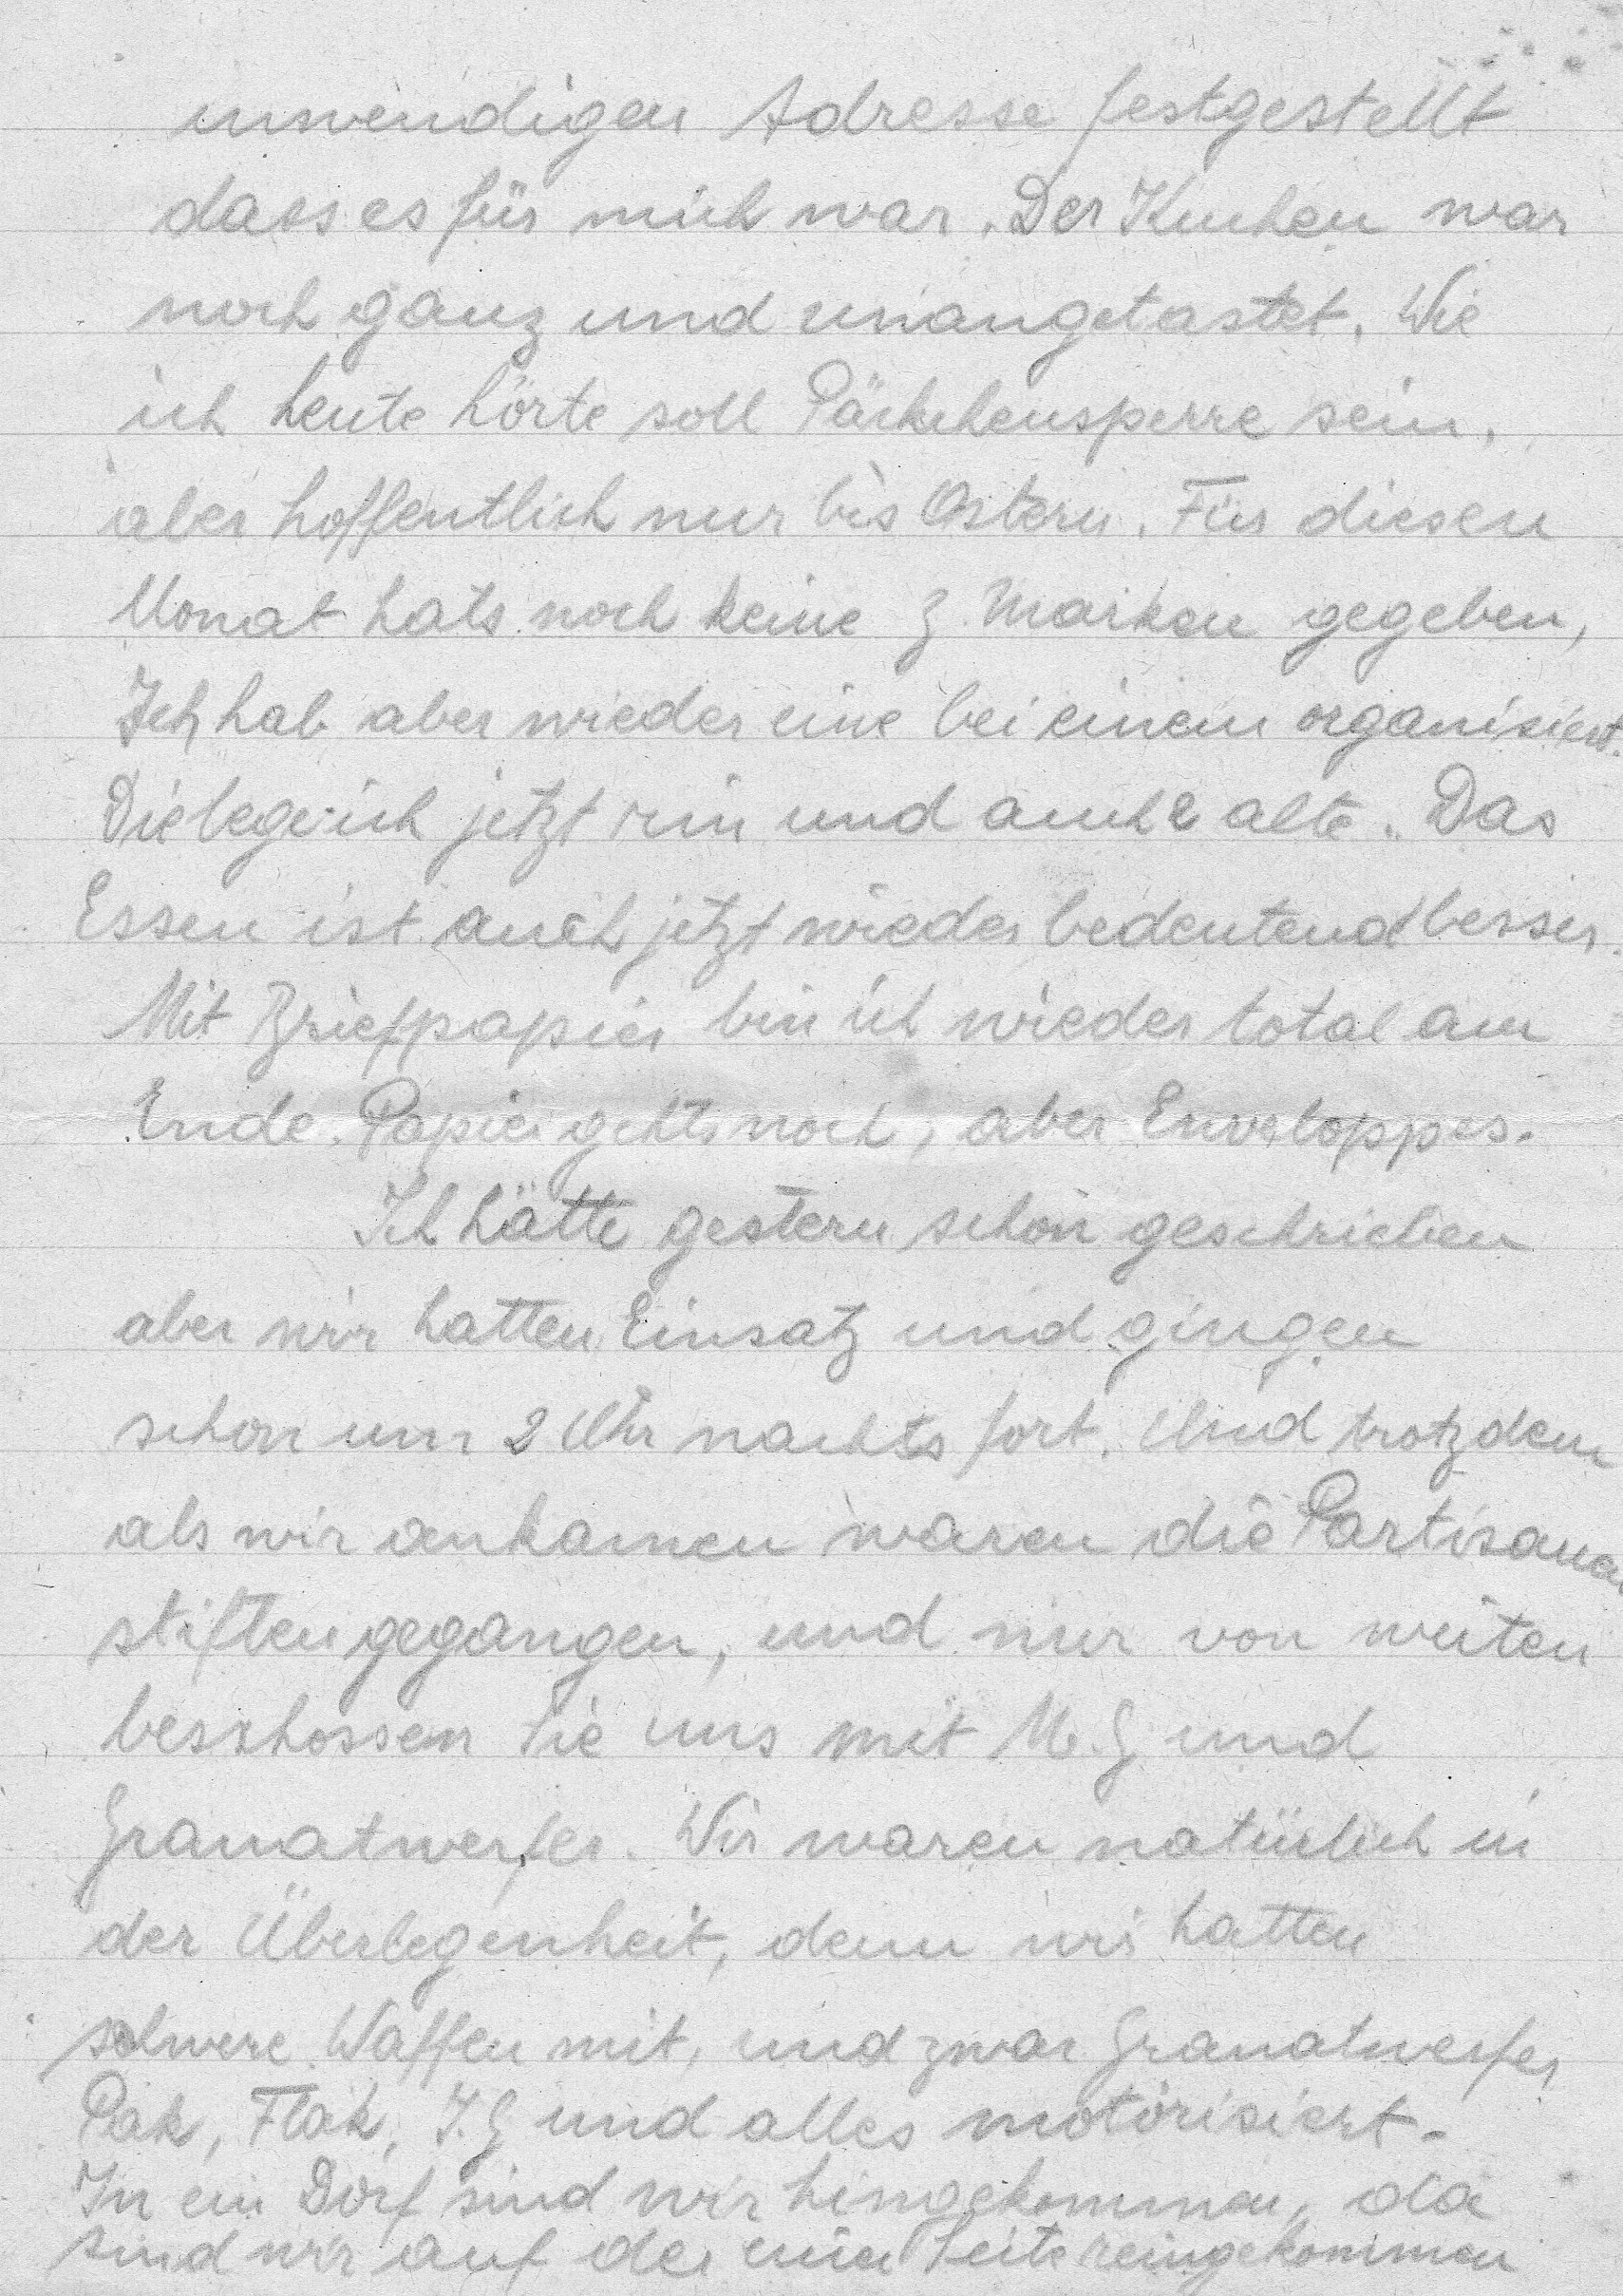 inwendigen Adresse festgestellt
dass es für mich war. Der Kuchen war
noch ganz und unangetastet. Wie
ich heute hörte soll Päckchensperre sein,
aber hoffentlich nur bis Ostern. Für diesen
Monat hats noch keine Z. Marken gegeben,
Ich hab aber wieder eine bei einem organisiert.
Die lege ich jetzt rin und auch 2 alte. Das
Essen ist auch jetzt wieder bedeutend besser.
Mit Briefpapier bin ich wieder total am
Ende. Papier gehts noch, aber Enveloppes.
Ich hätte gestern schon geschrieben
aber wir hatten Einsatz und gingen
schon um 2 Uhr nachts fort. Und trotzdem
als wir ankamen waren die Partisanen
stiften gegangen, und nur von weiten
beschossen sie uns mit M.G und
Granatwerfer. Wir waren natürlich in
der Überlegenheit, denn wir hatten
schwere Waffen mit, und zwar Granatwerfer
Pak, Flak, I.G und alles motorisiert.
In ein Dorf sind wir hingekommen, da
sind wir auf der einen Seite reingekommen